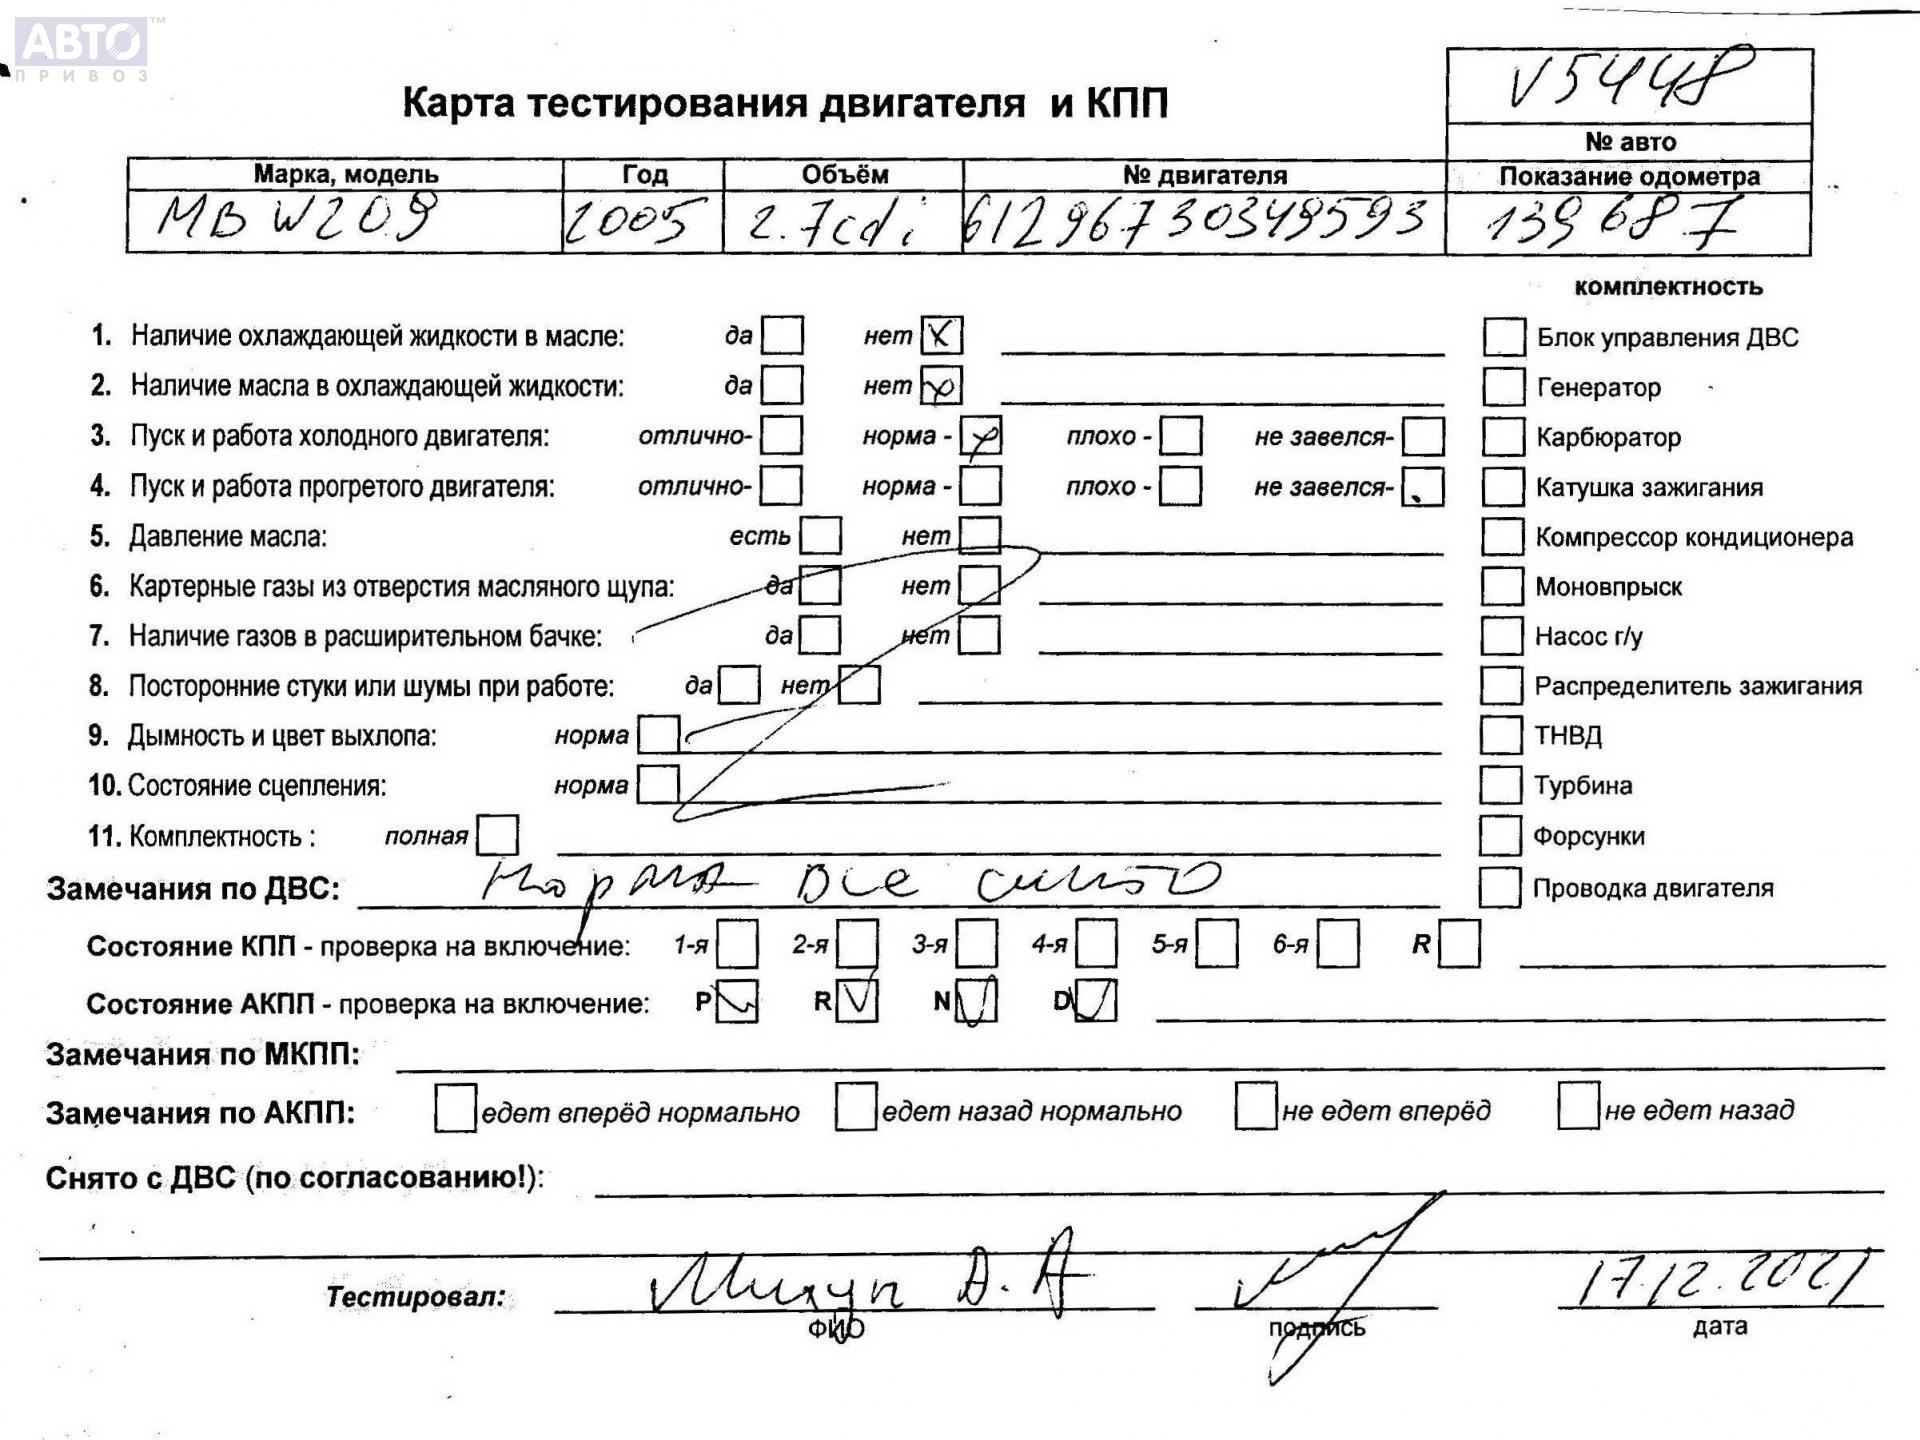 АВТО™
ПРИВОЗ
V5448
Карта тестирования двигателя и КПП
№ авто
Марка, модель Год Объём № двигателя Показание одометра
MB W209 2005 2.7cdi 61296730349593 139687
комплектность
1. Наличие охлаждающей жидкости в масле: да нет x Блок управления ДВС
2. Наличие масла в охлаждающей жидкости: да нет x Генератор
3. Пуск и работа холодного двигателя: отлично- норма - x плохо - не завелся- Карбюратор
4. Пуск и работа прогретого двигателя: отлично- норма - плохо - не завелся- Катушка зажигания
5. Давление масла: есть нет Компрессор кондиционера
6. Картерные газы из отверстия масляного щупа: да нет Моновпрыск
7. Наличие газов в расширительном бачке: да нет Насос г/у
8. Посторонние стуки или шумы при работе: да нет Распределитель зажигания
9. Дымность и цвет выхлопа: норма ТНВД
10. Состояние сцепления: норма Турбина
11. Комплектность : полная Форсунки
Замечания по ДВС: Норма все Проводка двигателя
Состояние КПП - проверка на включение: 1-я 2-я 3-я 4-я 5-я 6-я R
Состояние АКПП - проверка на включение: P R N D
Замечания по МКПП:
Замечания по АКПП: едет вперёд нормально едет назад нормально не едет вперёд не едет назад
Снято с ДВС (по согласованию!):
Тестировал: Д. А 17.12.2021
ФИО подпись дата